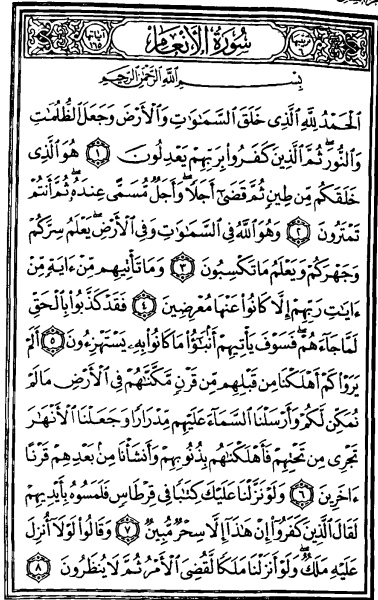 سُورَةُ الأَنْعَامِ
بِسْمِ ٱللَّهِ ٱلرَّحْمَٰنِ ٱلرَّحِيمِ
ٱلْحَمْدُ لِلَّهِ ٱلَّذِى خَلَقَ ٱلسَّمَٰوَٰتِ وَٱلْأَرْضَ وَجَعَلَ ٱلظُّلُمَٰتِ
وَٱلنُّورَ ۖ ثُمَّ ٱلَّذِينَ كَفَرُوا۟ بِرَبِّهِمْ يَعْدِلُونَ ١ هُوَ ٱلَّذِى
خَلَقَكُم مِّن طِينٍ ثُمَّ قَضَىٰٓ أَجَلًا ۖ وَأَجَلٌ مُّسَمًّى عِندَهُۥ ۖ ثُمَّ أَنتُمْ
تَمْتَرُونَ ٢ وَهُوَ ٱللَّهُ فِى ٱلسَّمَٰوَٰتِ وَفِى ٱلْأَرْضِ ۖ يَعْلَمُ سِرَّكُمْ
وَجَهْرَكُمْ وَيَعْلَمُ مَا تَكْسِبُونَ ٣ وَمَا تَأْتِيهِم مِّنْ ءَايَةٍ مِّنْ
ءَايَٰتِ رَبِّهِمْ إِلَّا كَانُوا۟ عَنْهَا مُعْرِضِينَ ٤ فَقَدْ كَذَّبُوا۟ بِٱلْحَقِّ
لَمَّا جَآءَهُمْ ۖ فَسَوْفَ يَأْتِيهِمْ أَنۢبَٰٓؤُا۟ مَا كَانُوا۟ بِهِۦ يَسْتَهْزِءُونَ ٥ أَلَمْ
يَرَوْا۟ كَمْ أَهْلَكْنَا مِن قَبْلِهِم مِّن قَرْنٍ مَّكَّنَّٰهُمْ فِى ٱلْأَرْضِ مَا لَمْ
نُمَكِّن لَّكُمْ وَأَرْسَلْنَا ٱلسَّمَآءَ عَلَيْهِم مِّدْرَارًا وَجَعَلْنَا ٱلْأَنْهَٰرَ
تَجْرِى مِن تَحْتِهِمْ فَأَهْلَكْنَٰهُم بِذُنُوبِهِمْ وَأَنشَأْنَا مِنۢ بَعْدِهِمْ قَرْنًا
ءَاخَرِينَ ٦ وَلَوْ نَزَّلْنَا عَلَيْكَ كِتَٰبًا فِى قِرْطَاسٍ فَلَمَسُوهُ بِأَيْدِيهِمْ
لَقَالَ ٱلَّذِينَ كَفَرُوٓا۟ إِنْ هَٰذَآ إِلَّا سِحْرٌ مُّبِينٌ ٧ وَقَالُوا۟ لَوْلَآ أُنزِلَ
عَلَيْهِ مَلَكٌ ۖ وَلَوْ أَنزَلْنَا مَلَكًا لَّقُضِىَ ٱلْأَمْرُ ثُمَّ لَا يُنظَرُونَ ٨